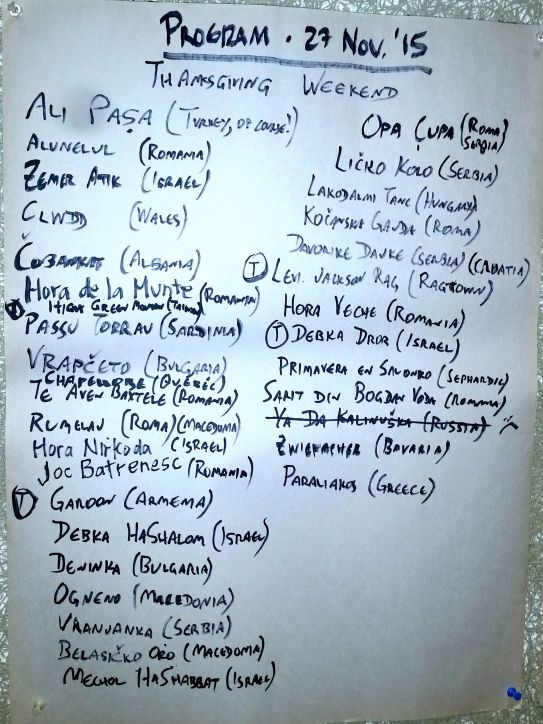 PROGRAM · 27 NOV. '15
THANKSGIVING WEEKEND
ALI PAŞA (TURKEY, OF COURSE!)
ALUNELUL (ROMANIA)
ZEMER ATIK (ISRAEL)
CLWDD (WALES)
ČOBANKAT (ALBANIA)
Hora de la Munte (ROMANIA)
HIGH GREEN MOUNTAIN (TAIWAN)
PASSU TORRAU (SARDINIA)
VRAPČETO (BULGARIA)
(QUÉBEC)
TE AVEN BAXTELE (ROMANIA)
RUMELAJ (ROMA) (MACEDONIA)
Hora Nirkoda (ISRAEL)
Joc Batrenesc (ROMANIA)
(T) GAROON (ARMENIA)
DEBKA HASHALOM (ISRAEL)
DENINKA (BULGARIA)
OGNENO (MACEDONIA)
VRANJANKA (SERBIA)
BELASIČKO ORO (MACEDONIA)
MECHOL HASHABBAT (ISRAEL)
OPA ÇUPA (ROMA) SERBIA)
LIČKO KOLO (SERBIA)
LAKODALMI TANC (HUNGARY)
KOČANSKA GAJDA (ROMA)
DAVORIKE DAJKE (SERBIA) (CROATIA)
(T) LEVI JACKSON RAG (RAGTOWN)
HORA VECHE (ROMANIA)
(T) DEBKA DROR (ISRAEL)
PRIMAVERA EN SALONKO (SEPHARDIC)
SANIT DIN BOGDAN VODA (ROMANIA)
YA DA KALINUŠKA (RUSSIA)
ZWIEFACHER (BAVARIA)
PARALIAKOS (GREECE)